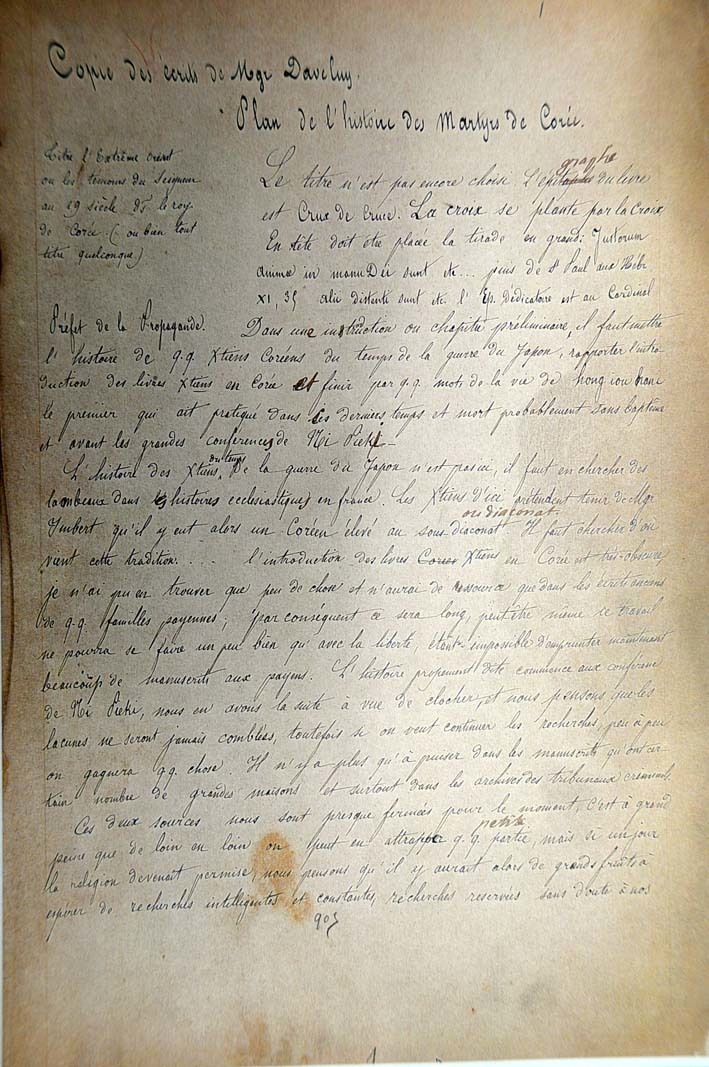 Copie des écrits de Mgr Daveluy.
Plan de l'histoire des Martyrs de Corée.
Titre l'Extrême orient
ou les témoins du Seigneur
au 19 siècle ds le roy.
de Corée. (ou bien tout
titre quelconque)
Le titre n'est pas encore choisi. L'épigraphe du livre
est Crux de Cruce. La croix se plante par la Croix,
En tête doit être placée la tirade en grand: Justorum
animæ in manu Dei sunt etc... puis de St Paul aux Hébr
XI, 35 alii distenti sunt etc. l'Ep. dédicatoire est au Cardinal
Préfet de la Propagande. Dans une instruction ou chapitre préliminaire, il faut mettre
l'histoire de q.q. Xtiens Coréens du temps de la guerre du Japon, rapporter l'intro-
duction des livres Xtiens en Corée et finir par q.q. mots de la vie de hong iou hani
le premier qui ait pratiqué dans ces derniers temps et mort probablement sans baptême
et avant les grandes conférences de Ni Pieki.
L'histoire des Xtiens du temps de la guerre du Japon n'est pas ici, il faut en chercher des
lambeaux dans les histoires ecclésiastiques en france. Les Xtiens d'ici prétendent tenir de Mgr
Imbert qu'il y eut alors un Coréen élevé au sous-diaconat ou diaconat. Il faut chercher d'où
vient cette tradition.... l'introduction des livres Xtiens en Corée est très-obscure
je n'ai pu en trouver que peu de chose et n'aurai de ressource que dans les écrits anciens
de q.q. familles payennes; par conséquent ce sera long, peut être même ce travail
ne pourra se faire un peu bien qu'avec la liberté, étant impossible d'emprunter maintenant
beaucoup de manuscrits aux payens. L'histoire proprement dite commence aux conférences
de Ni Pieki, nous en avons la suite à vue de clocher, et nous pensons que les
lacunes ne seront jamais comblées, toutefois si on veut continuer les recherches, peu à peu
on gagnera q.q. chose. Il n'y a plus qu'à puiser dans les manuscrits qu'ont cer
tain nombre de grandes maisons et surtout dans les archives des tribunaux criminels.
Ces deux sources nous sont presque fermées pour le moment, c'est à grand
peine que de loin en loin on peut en attraper q.q. petite partie, mais si un jour
la religion devenait permise, nous pensons qu'il y aurait alors de grands fruits à
espérer de recherches intelligentes et constantes, recherches reservées sans doute à nos
905